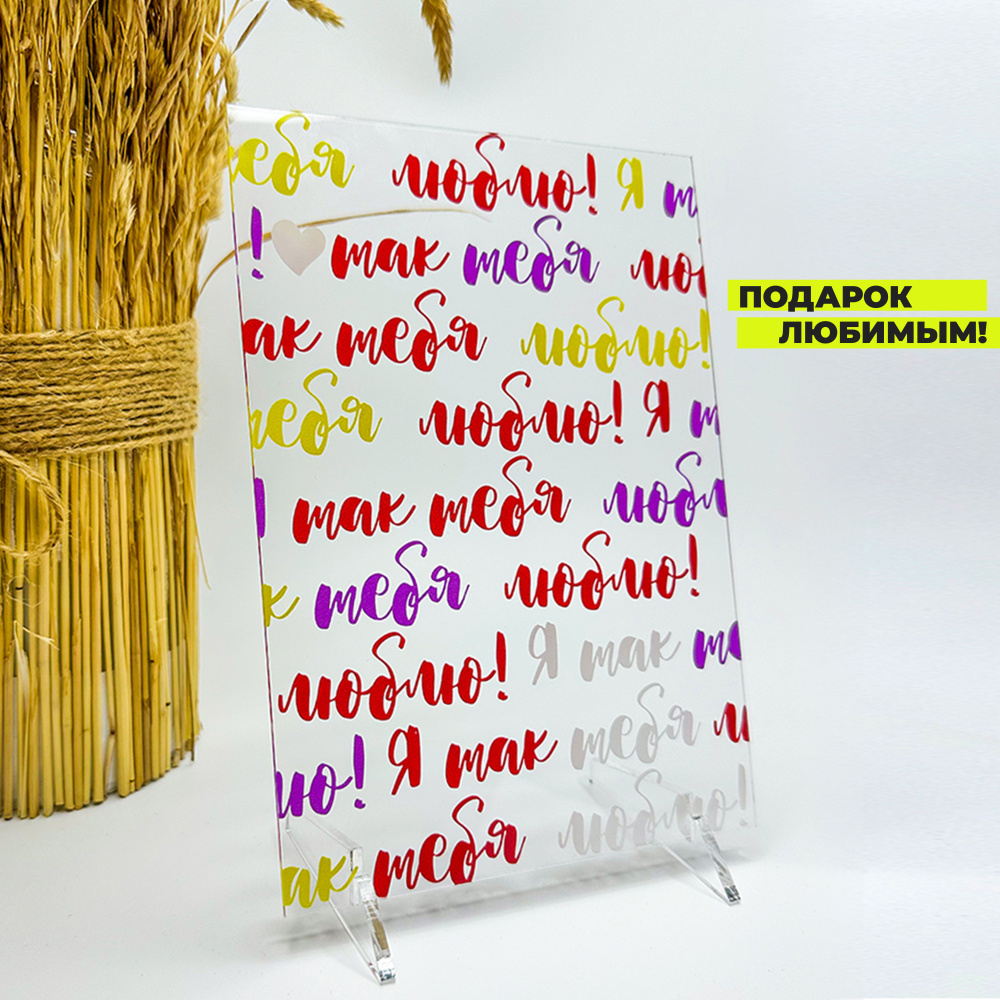 тебя люблю! Я т
! так тебя лю
ак тебя люблю!
тебя люблю! Я т
! так тебя любл
к тебя люблю!
люблю! Я так те
лю! Я так тебя л
ак тебя люблю!
ПОДАРОК
ЛЮБИМЫМ!